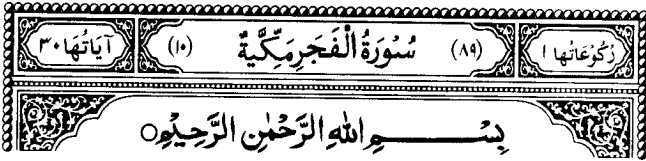 رُكُوعَاتُهَا ١ (٨٩) سُوْرَةُ الْفَجْرِ مَكِّيَّةٌ (١٠) آيَاتُهَا ٣٠
بِسْمِ اللهِ الرَّحْمٰنِ الرَّحِيْمِ○